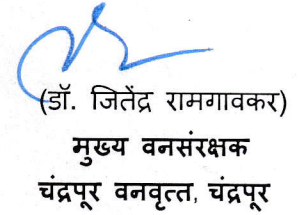 (डॉ. जितेंद्र रामगावकर)
मुख्य वनसंरक्षक
चंद्रपूर वनवृत्त, चंद्रपूर